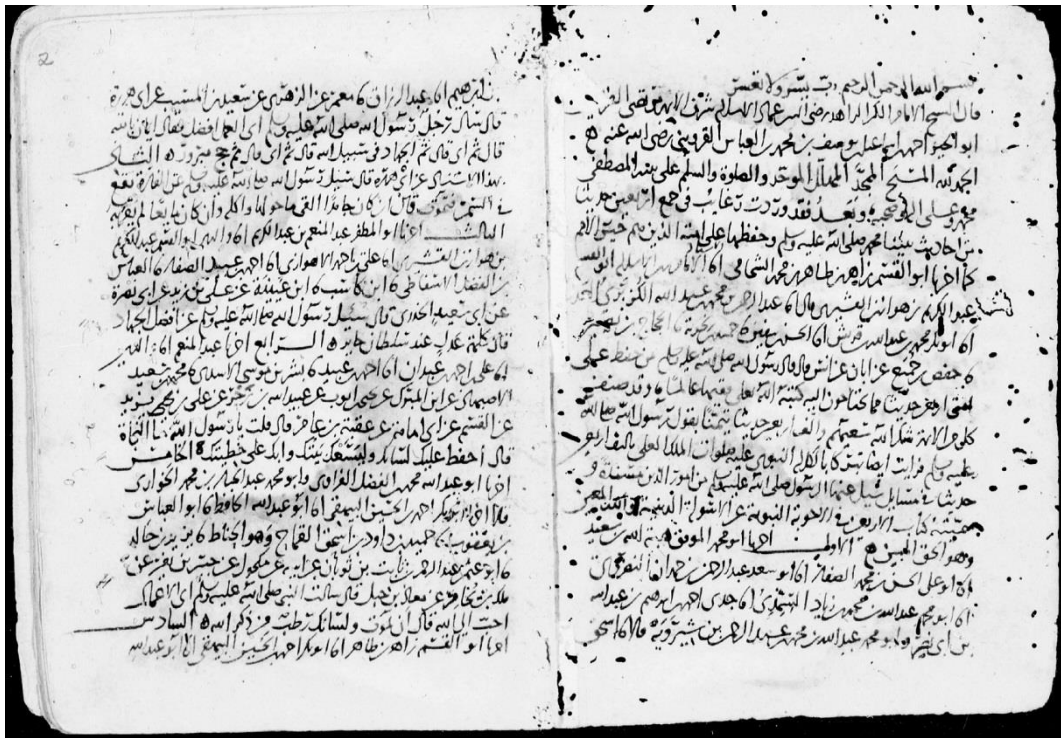 بسم الله الرحمن الرحيم رب يسر ولا تعسر
قال الشيخ الامام الزاهد رضي الدين عماد الاسلام شرف الائمة
ابو الخير احمد بن اسمعيل بن يوسف بن محمد بن العباس القزويني رضي الله عنه
الحمد لله المسبح الممجد المهلل الموحد والصلوة والسلم على نبيه المصطفى
محمد وعلى وصحبه وبعد فقد وردت رغايب في جمع اربعين حديثا
من احاديث نبينا محمد صلى الله عليه وسلم وحفظها على
كما اخبرنا ابو القسم زاهر بن طاهر بن محمد الشحامي انا الامام ابو القسم
عبد الكريم بن هوازن القشيري قال انا عبد الرحمن بن محمد بن عبد الله
انا ابو بكر محمد بن عبد الله بن قريش انا الحسن بن سفين نا حميد بن زنجويه نا الحجاج بن نصير
نا حفص بن جميع عن ابان عن انس قال قال رسول الله صلى الله عليه وسلم من حفظ على
امتي اربعين حديثا مما يحتاجون اليه كتبه الله تعالى فقيها عالما وقد صنف
الائمة شكر الله سعيهم اربعين حديثا تيمنا بقول رسول الله صلى الله
عليه وسلم فرايت
حديثا في مسايل سئل عنها الرسول صلى الله عليه وسلم من امور الدين
كتاب الاربعين في الاجوبة النبوية عن الاسولة الدينية والله المعين
وهو الحق المبين الاول اخبرنا ابو محمد الموفق بن سعيد
انا ابو علي الحسن بن محمد الصفار انا ابو سعد عبد الرحمن بن حمدان النصروي
انا ابو محمد عبد الله بن محمد بن زياد السمذي انا جدي احمد بن ابرهيم بن عبد الله
بن ابي وابو محمد عبد الله بن محمد بن عبد الرحمن بن شيرويه قالا نا اسحق
بن ابرهيم انا عبد الرزاق نا معمر عن الزهري عن سعيد بن المسيب عن ابي هريرة
قال سال رجل رسول الله صلى الله عليه وسلم اي العمل افضل فقال ايمان بالله
قال ثم اي قال ثم الجهاد في سبيل الله قال ثم اي قال ثم حج مبرور الثاني
بهذا الاسناد عن ابي هريرة قال سئل رسول الله صلى الله عليه وسلم عن الفارة تقع
في السمن فتموت قال ان كان جامدا القي ما حولها واكل وان كان مايعا لم يقربه
الثالث اخبرنا ابو المظفر عبد المنعم بن عبد الكريم انا والدي ابو القسم عبد الكريم
بن هوازن القشيري انا علي بن احمد الاهوازي انا احمد بن عبيد الصفار نا العباس
بن الفضل الاسفاطي نا ابن كاسب نا ابن عيينة عن علي بن زيد عن ابي نضرة
عن ابي سعيد الخدري قال سئل رسول الله صلى الله عليه وسلم عن افضل الجهاد
قال كلمة عدل عند سلطان جاير الرابع اخبرنا عبد المنعم انا والدي
انا علي بن احمد بن عبدان انا احمد بن عبيد نا بشر بن موسى الاسدي نا محمد بن سعيد
الاصبهاني عن ابن المبرك عن يحيى بن ايوب عن عبيد الله بن زحر عن علي بن يزيد
عن القسم عن ابي امامة عن عقبة بن عامر قال قلت يا رسول الله ما النجاة
قال احفظ عليك لسانك وليسعك بيتك وابك على خطيئتك الخامس
اخبرنا ابو عبد الله محمد بن الفضل الفراوي وابو محمد عبد الجبار بن محمد الخواري
قالا انا ابو بكر احمد بن الحسين البيهقي انا ابو عبد الله الحافظ نا ابو العباس
بن يعقوب نا حميد بن داود بن اسحق القماح وهو الحناط نا يزيد بن خالد
نا ابو عثمر عبد الرحمن بن ثابت بن ثوبان عن ابيه عن مكحول عن جبير بن نفير عن
ملك بن يخامر عن معاذ بن جبل قال سالت النبي صلى الله عليه وسلم اي الاعمال
احب الى الله قال ان تموت ولسانك رطب من ذكر الله السادس
اخبرنا ابو القسم زاهر بن طاهر انا ابو بكر احمد بن الحسين البيهقي انا ابو عبد الله